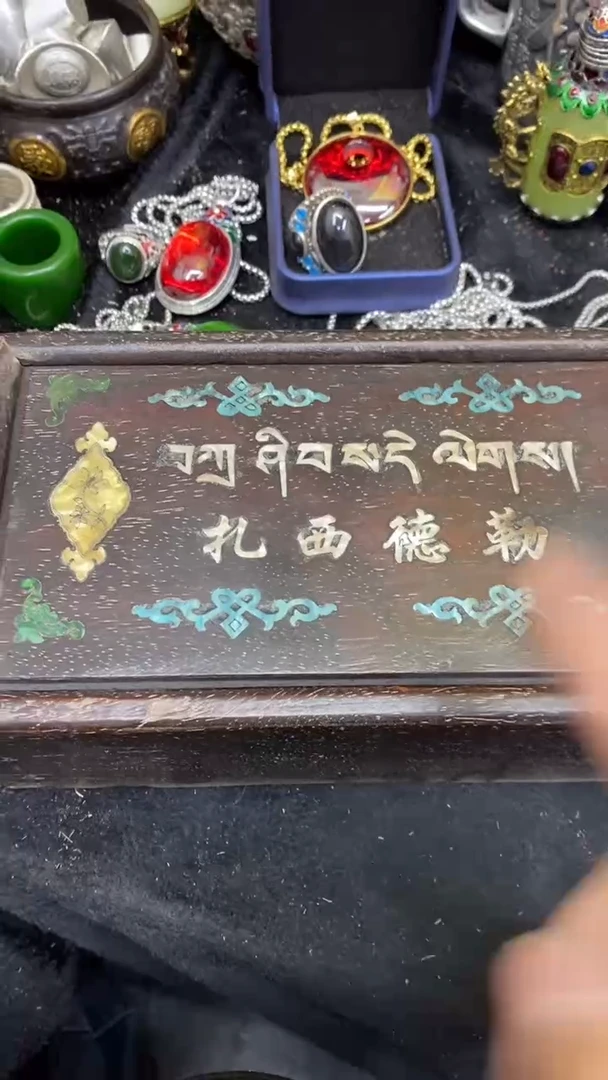 བཀྲ ཤིབ སདེ ལེགས།
扎西德勒